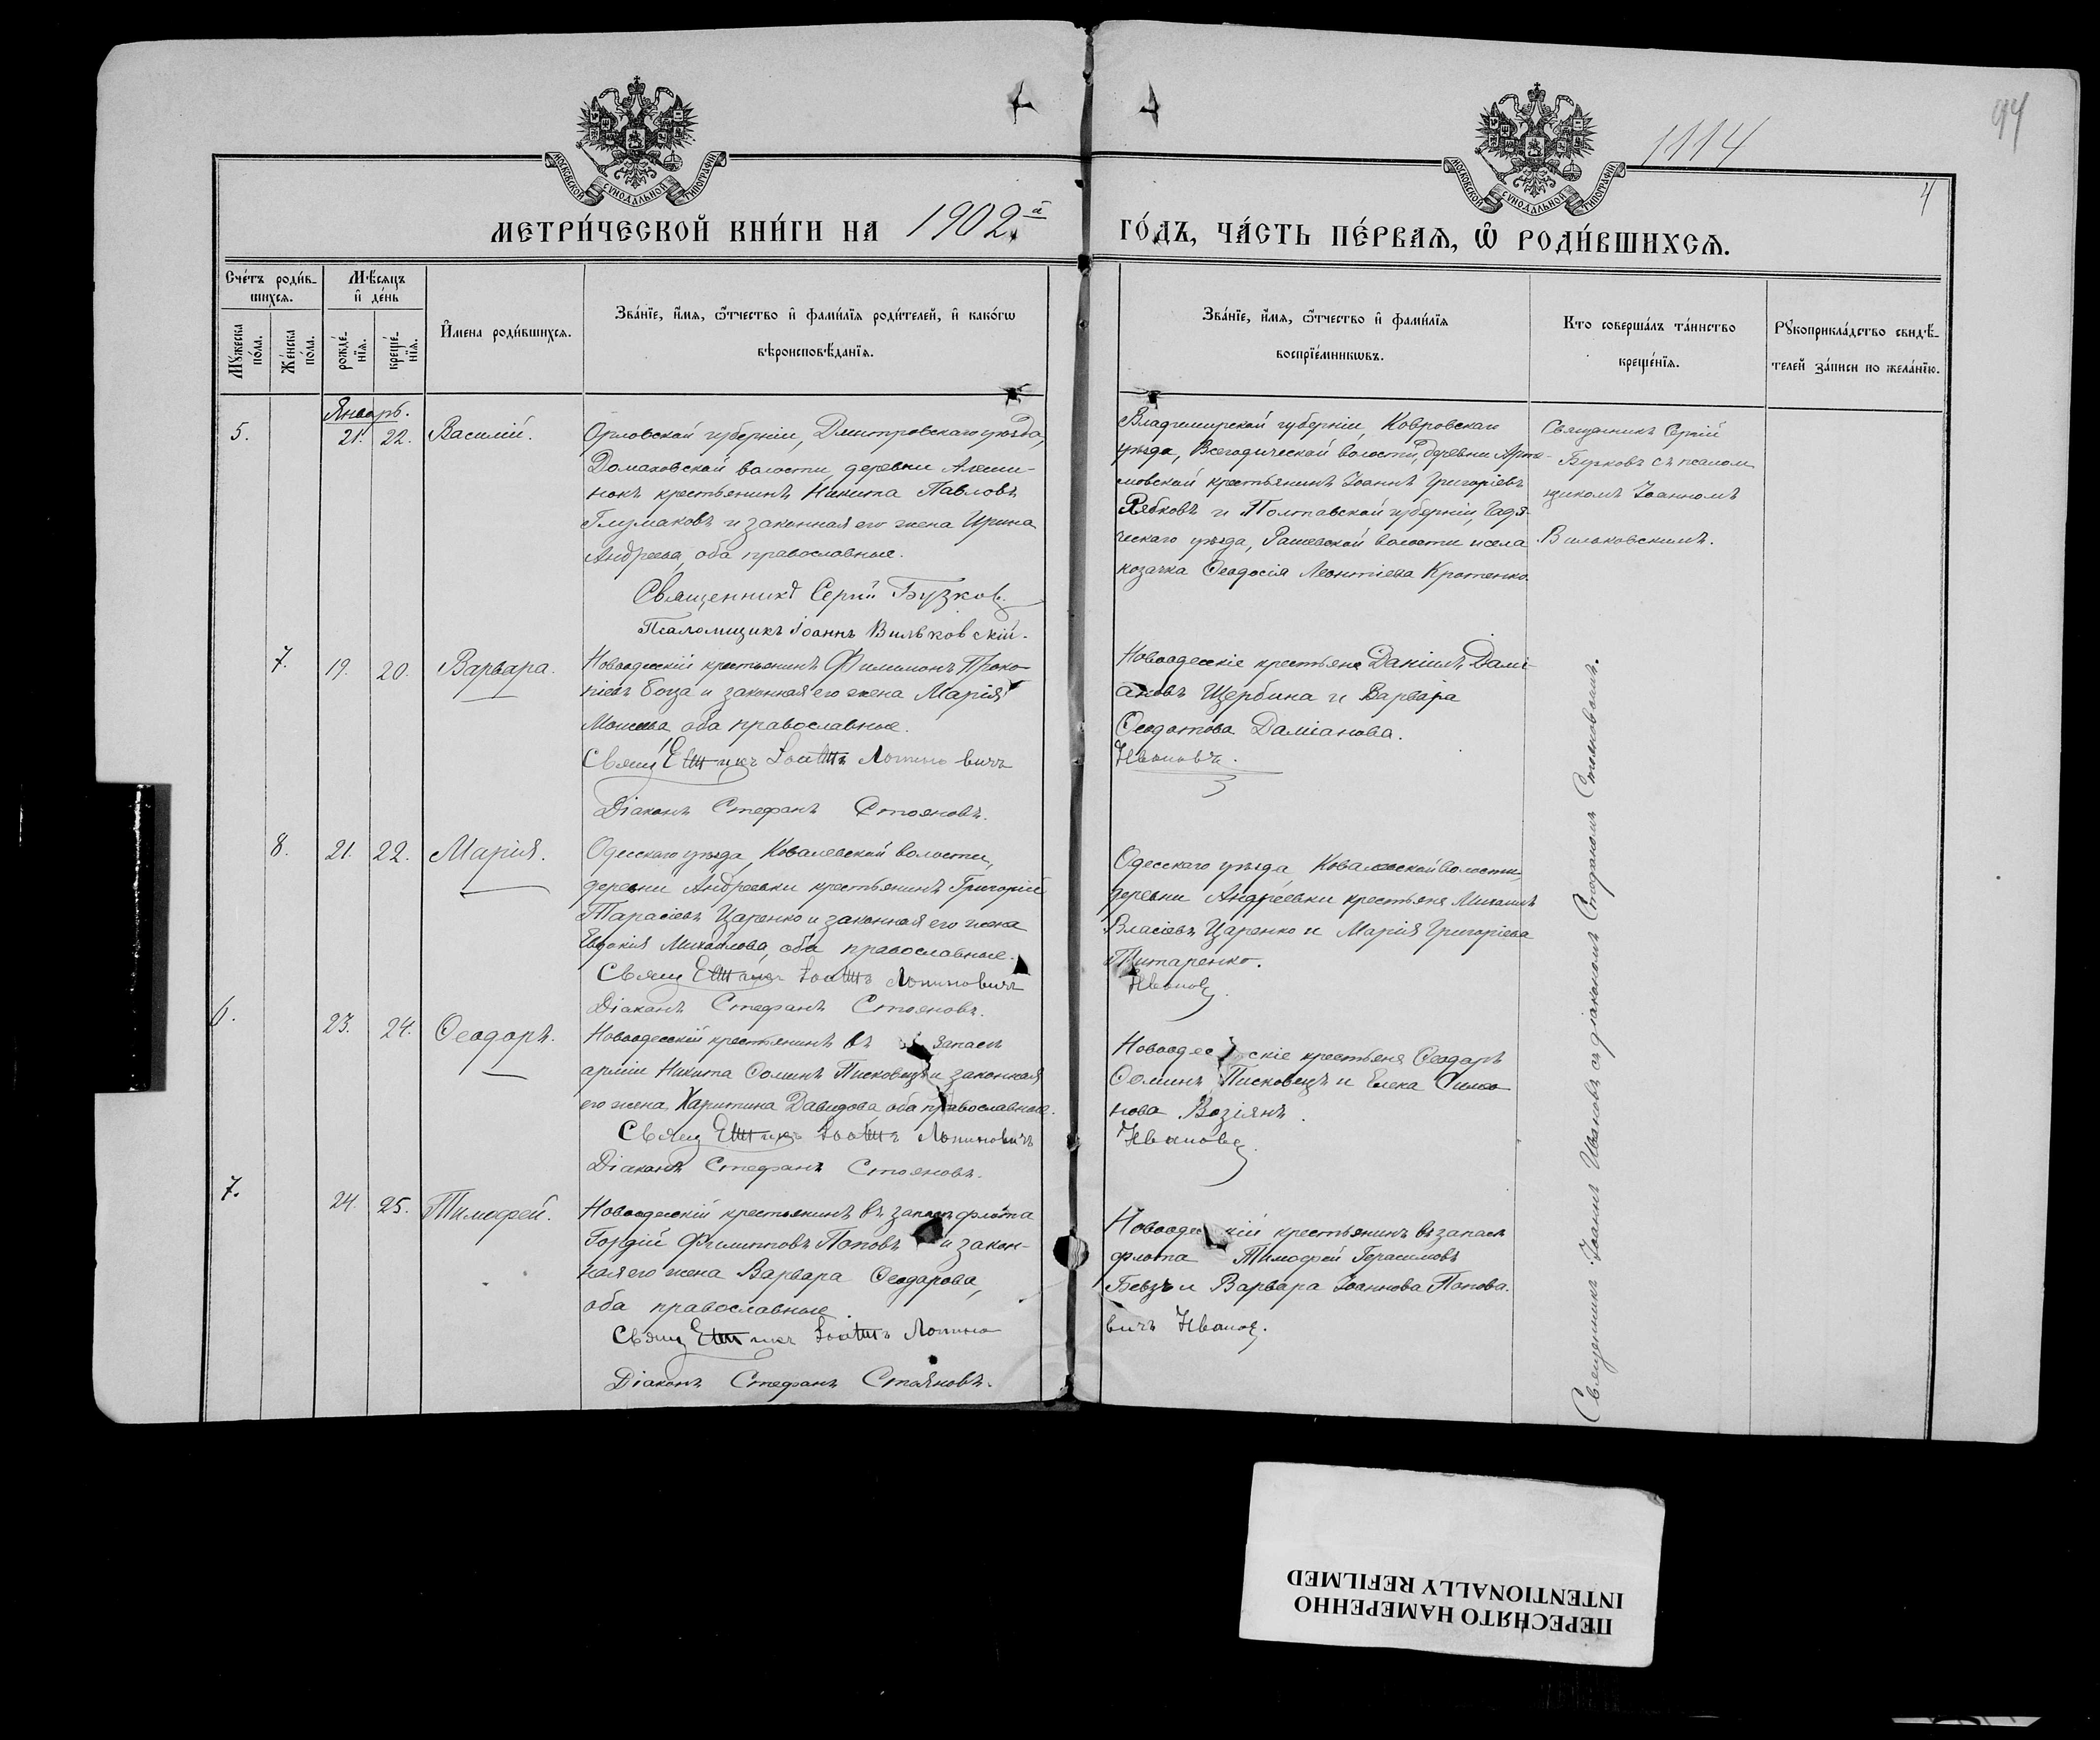 94
1114
4
МОСКОВСКОЙ СУНОДАЛЬНОЙ ТИПОГРАФІИ
МОСКОВСКОЙ СУНОДАЛЬНОЙ ТИПОГРАФІИ
МЕТРИ́ЧЕСКОЙ КНИ́ГИ НА 1902й ГО́ДЪ, ЧА́СТЬ ПЕ́РВАѦ, Ѡ РОДИ́ВШИХСѦ.
Сче́тъ роди́в-
шихсѧ.
Мꙋжеска по́ла.
Же́нска по́ла.
Мѣ́сѧцъ
и҆ де́нь
рожде́-
нїѧ.
креще́-
нїѧ.
И҆мена роди́вшихсѧ.
Зва́нїе, и҆́мѧ, ѻ҆́тчество и҆ фами́лїѧ роди́телей, и҆ како́гѡ
вѣроисповѣ́данїѧ.
Зва́нїе, и҆́мѧ, ѻ҆́тчество и҆ фами́лїѧ
воспрїе́мникѡвъ.
Кто соверша́лъ та́инство
креще́нїѧ.
Рꙋкоприкла́дство свидѣ́-
телей за́писи по жела́нїю.
Январь.
5. 21. 22. Василій.
Орловской губерніи, Дмитровскаго уѣзда,
Домаховской волости, деревни Алеши-
нокъ крестьянинъ Никита Павловъ
Глумаковъ и законная его жена Ирина
Андреева, оба православные.
Священникъ Сергій Бузков.
Псаломщикъ Іоаннъ Вильковскій.
Владимирской губерніи, Ковровскаго
уѣзда, Всегодической волости, деревни Арте-
мовской крестьянинъ Іоаннъ Григоріевъ
Рябковъ и Полтавской губерніи, Гадя-
ческаго уѣзда, Рашевской волости и села
козачка Ѳеодосія Леонтіева Кротенко.
Священникъ Сергій
Бузковъ съ псалом
щикомъ Іоанномъ
Вильковскимъ.
7. 19. 20. Варвара.
Новоодесскій крестьянинъ Филимонъ Проко-
піевъ Боца и законная его жена Марія
Моисеева, оба православные.
Діаконъ Стефанъ Стояновъ.
Новоодесскіе крестьяне Даніилъ Дамі-
ановъ Щербина и Варвара
Ѳеодотова Даміанова.
Ивановъ.
8. 21. 22. Марія.
Одесскаго уѣзда, Ковалевской волости,
деревни Андреевки крестьянинъ Григорій
Тарасіевъ Царенко и законная его жена
Евдокія Михайлова, оба православные.
Діаконъ Стефанъ Стояновъ.
Одесскаго уѣзда Ковалевской волости,
деревни Андреевки крестьяне Михаилъ
Власіевъ Царенко и Марія Григоріева
Титаренко.
Ивановъ.
6. 23. 24. Ѳеодоръ.
Новоодесскій крестьянинъ въ запасѣ
арміи Никита Ѳоминъ Писковецъ и законная
его жена Харитина Давидова, оба православные.
Діаконъ Стефанъ Стояновъ.
Новоодесскіе крестьяне Ѳеодоръ
Ѳоминъ Писковецъ и Елена Симо
нова Возіянъ.
Ивановъ.
7. 24. 25. Тимофей.
Новоодесскій крестьянинъ въ запасѣ флота
Гордій Филипповъ Поповъ и закон-
ная его жена Варвара Ѳеодорова,
оба православные.
Діаконъ Стефанъ Стояновъ.
Новоодесскій крестьянинъ въ запасѣ
флота Тимофей Герасимовъ
Бевзъ и Варвара Іоаннова Попова.
вичъ Ивановъ.
Священникъ Іоаннъ Ивановъ съ діакономъ Стефаномъ Стояновымъ.
ПЕРЕСНЯТО НАМЕРЕННО
INTENTIONALLY REFILMED